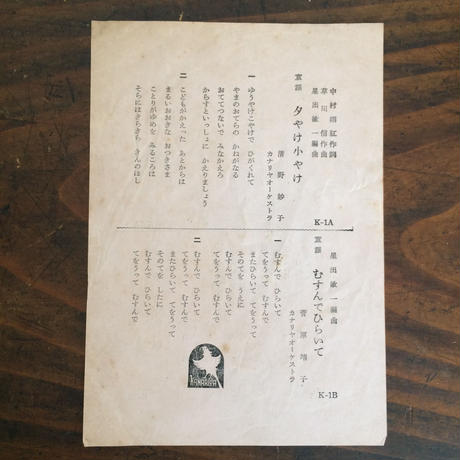 中村雨紅作詞
草川信作曲
星出敏一編曲
童謡 夕やけ小やけ
清野紗子
カナリヤオーケストラ
一
ゆうやけこやけで ひがくれて
やまのおてらの かねがなる
おててつないで みなかえろ
からすといっしょに かえりましょう
二
こどもがかえった あとからは
まるいおおきな おつきさま
ことりがゆめを みるころは
そらにはきらきら きんのほし
K-1A
星出敏一編曲
童謡 むすんでひらいて
菅原靖子
カナリヤオーケストラ
一
むすんで ひらいて
てをうって むすんで
またひらいて てをうって
そのてを うえに
むすんで ひらいて
てをうって むすんで
二
むすんで ひらいて
てをうって むすんで
またひらいて てをうって
そのてを したに
むすんで ひらいて
てをうって むすんで
KANARIYA
K-1B